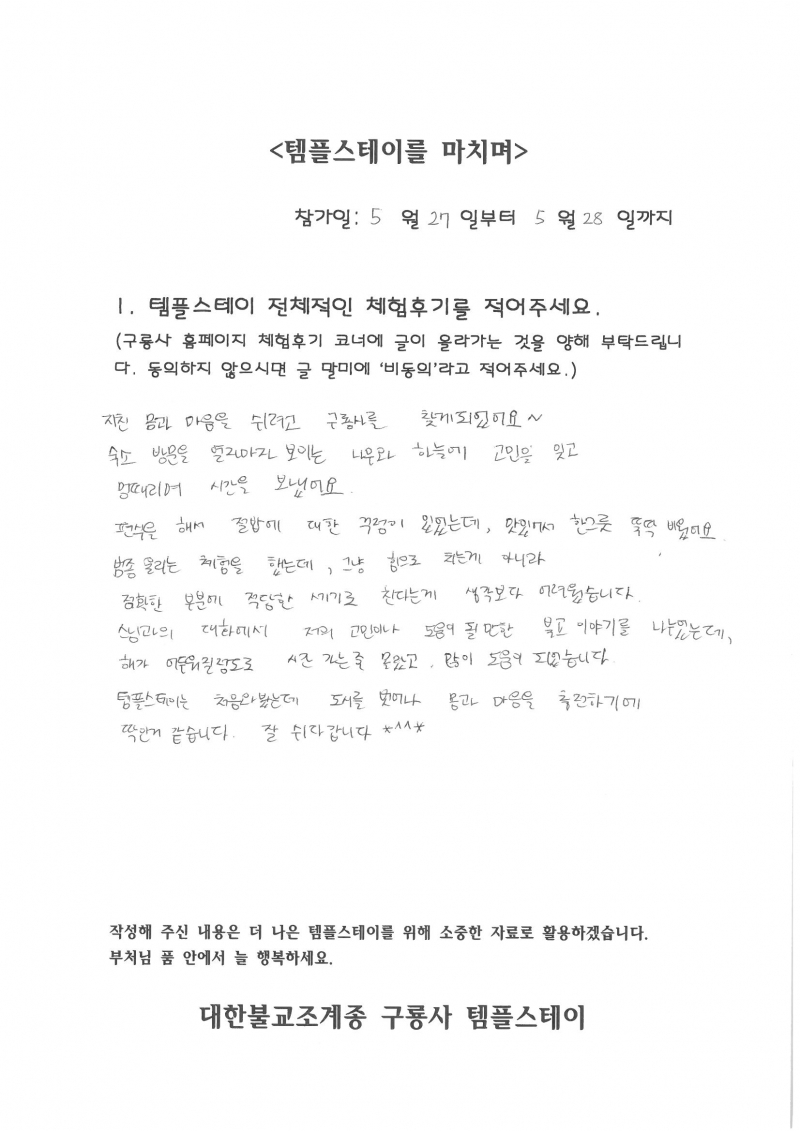 <템플스테이를 마치며>
참가일: 5 월 27 일부터 5 월 28 일까지
1. 템플스테이 전체적인 체험후기를 적어주세요.
(구룡사 홈페이지 체험후기 코너에 글이 올라가는 것을 양해 부탁드립니
다. 동의하지 않으시면 글 말미에 '비동의'라고 적어주세요.)
지친 몸과 마음을 쉬려고 구룡사를 찾게되었어요~
숙소 방문을 열자마자 보이는 나무와 하늘에 고민을 잊고
멍때리며 시간을 보냈어요.
편식을 해서 절밥에 대한 걱정이 있었는데, 맛있어서 한그릇 뚝딱 비웠어요.
범종 울리는 체험을 했는데, 그냥 힘으로 치는게 아니라
정확한 부분에 적당한 세기로 친다는게 생각보다 어려웠습니다.
스님과의 대화에서 저의 고민이나 도움이 될 만한 불교 이야기를 나누었는데,
해가 어두워질정도로 시간 가는줄 몰랐고, 많이 도움이 되었습니다.
템플스테이는 처음와봤는데 도시를 벗어나 몸과 마음을 충전하기에
딱인거 같습니다. 잘 쉬다갑니다 *^^*
작성해 주신 내용은 더 나은 템플스테이를 위해 소중한 자료로 활용하겠습니다.
부처님 품 안에서 늘 행복하세요.
대한불교조계종 구룡사 템플스테이